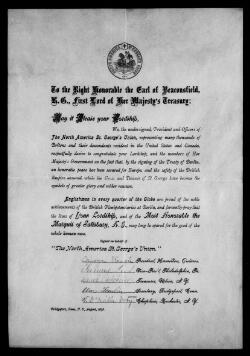 To the Right Honorable the Earl of Beaconsfield,
K. G., First Lord of Her Majesty's Treasury:
May it Please your Lordship,
We, the undersigned, President and Officers of
The North America St. George's Union, representing many thousands of
Britons and their descendants resident in the United States and Canada,
respectfully desire to congratulate your Lordship, and the members of Her
Majesty's Government on the fact that, by the signing of the Treaty of Berlin,
an honorable peace has been secured for Europe, and the safety of the British
Empire assured while the Cross and Ensign of St. George have become the
symbols of greater glory and nobler renown.
Englishmen in every quarter of the Globe are proud of the noble
achievements of the British Plenipotentiaries at Berlin, and fervently pray that
the lives of Your Lordship, and of the Most Honorable the
Marquis of Salisbury, K. G., may long be spared for the good of the
whole human race.
Signed on behalf of
"The North America St. George's Union."
President, Hamilton, Ontario.
Vice-Pres't, Philadelphia, Pa.
Treasurer, Utica, N. Y.
Secretary, Bridgeport, Conn.
Chaplain, Rochester, N. Y.
Bridgeport, Conn., U. S., August, 1878.